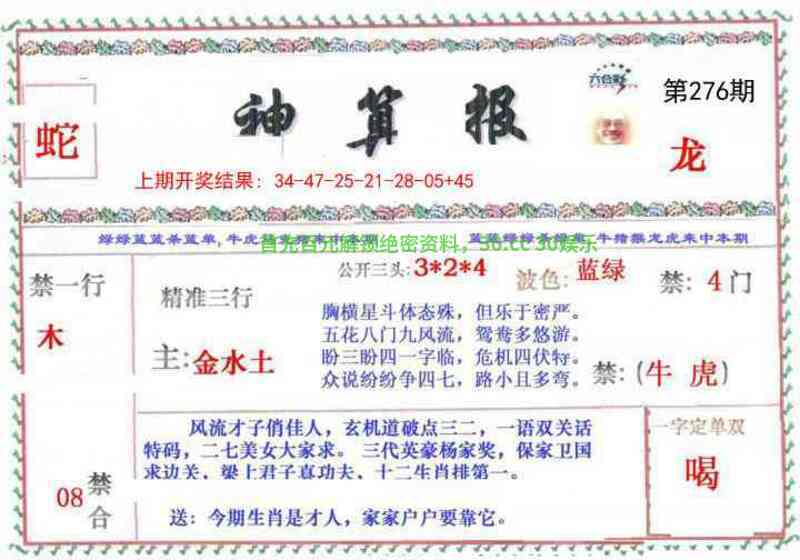 六合彩
第276期
蛇
神算报
龙
上期开奖结果：34-47-25-21-28-05+45
绿绿蓝蓝杀蓝单，牛虎
牛猪猴龙虎来中本期
首充百元解锁绝密资料，30.cc 30娱乐
禁一行
木
精准三行
主：金水土
公开三头：3*2*4
波色：蓝绿
禁：4门
胸横星斗体态殊，但乐于密严。
五花八门九风流，鸳鸯多悠游。
盼三盼四一字临，危机四伏特。
众说纷纷争四七，路小且多弯。
禁：(牛 虎)
风流才子俏佳人，玄机道破点三二，一语双关话
特码，二七美女大家求。 三代英豪杨家奖，保家卫国
求边关，梁上君子真功夫，十二生肖排第一。
08
禁合
送：今期生肖是才人，家家户户要靠它。
一字定单双
喝